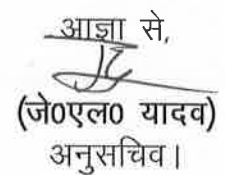 आज्ञा से,
(जे०एल० यादव)
अनुसचिव।